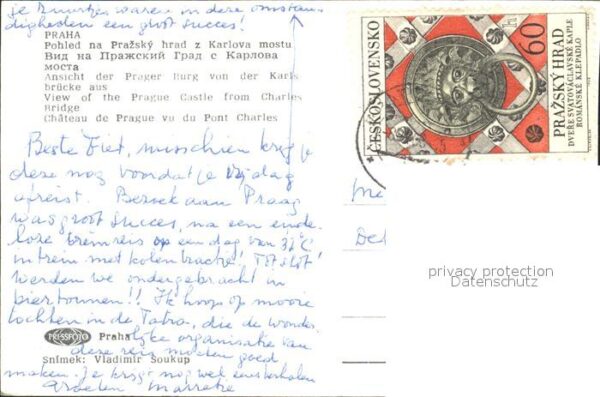 je buurtjes waren in deze omstan
digheden een groot succes!
PRAHA
Pohled na Pražský hrad z Karlova mostu
Вид на Пражский Град с Карлова
моста
Ansicht der Prager Burg von der Karls
brücke aus
View of the Prague Castle from Charles
Bridge
Château de Prague vu du Pont Charles
Beste Fiet, misschien krijg je
deze nog voordat je vrijdag
afreist. Bezoek aan Praag
was groot succes, na een einde
loze treinreis op een dag van 32°C
in trein met kolentractie! Tot slot
werden we ondergebracht in
biertonnen!! Ik hoop op mooie
tochten in de Tatra, die de wonder
lijke organisatie van
deze reis moeten goed
maken. Je krijgt nog wel eens verhalen
Groeten
PRESSFOTO Praha
Snímek: Vladimír Soukup
ČESKOSLOVENSKO
60 h
PRAŽSKÝ HRAD
DVEŘE SVATOVÁCLAVSKÉ KAPLE
ROMÁNSKÉ KLEPADLO
privacy protection
Datenschutz